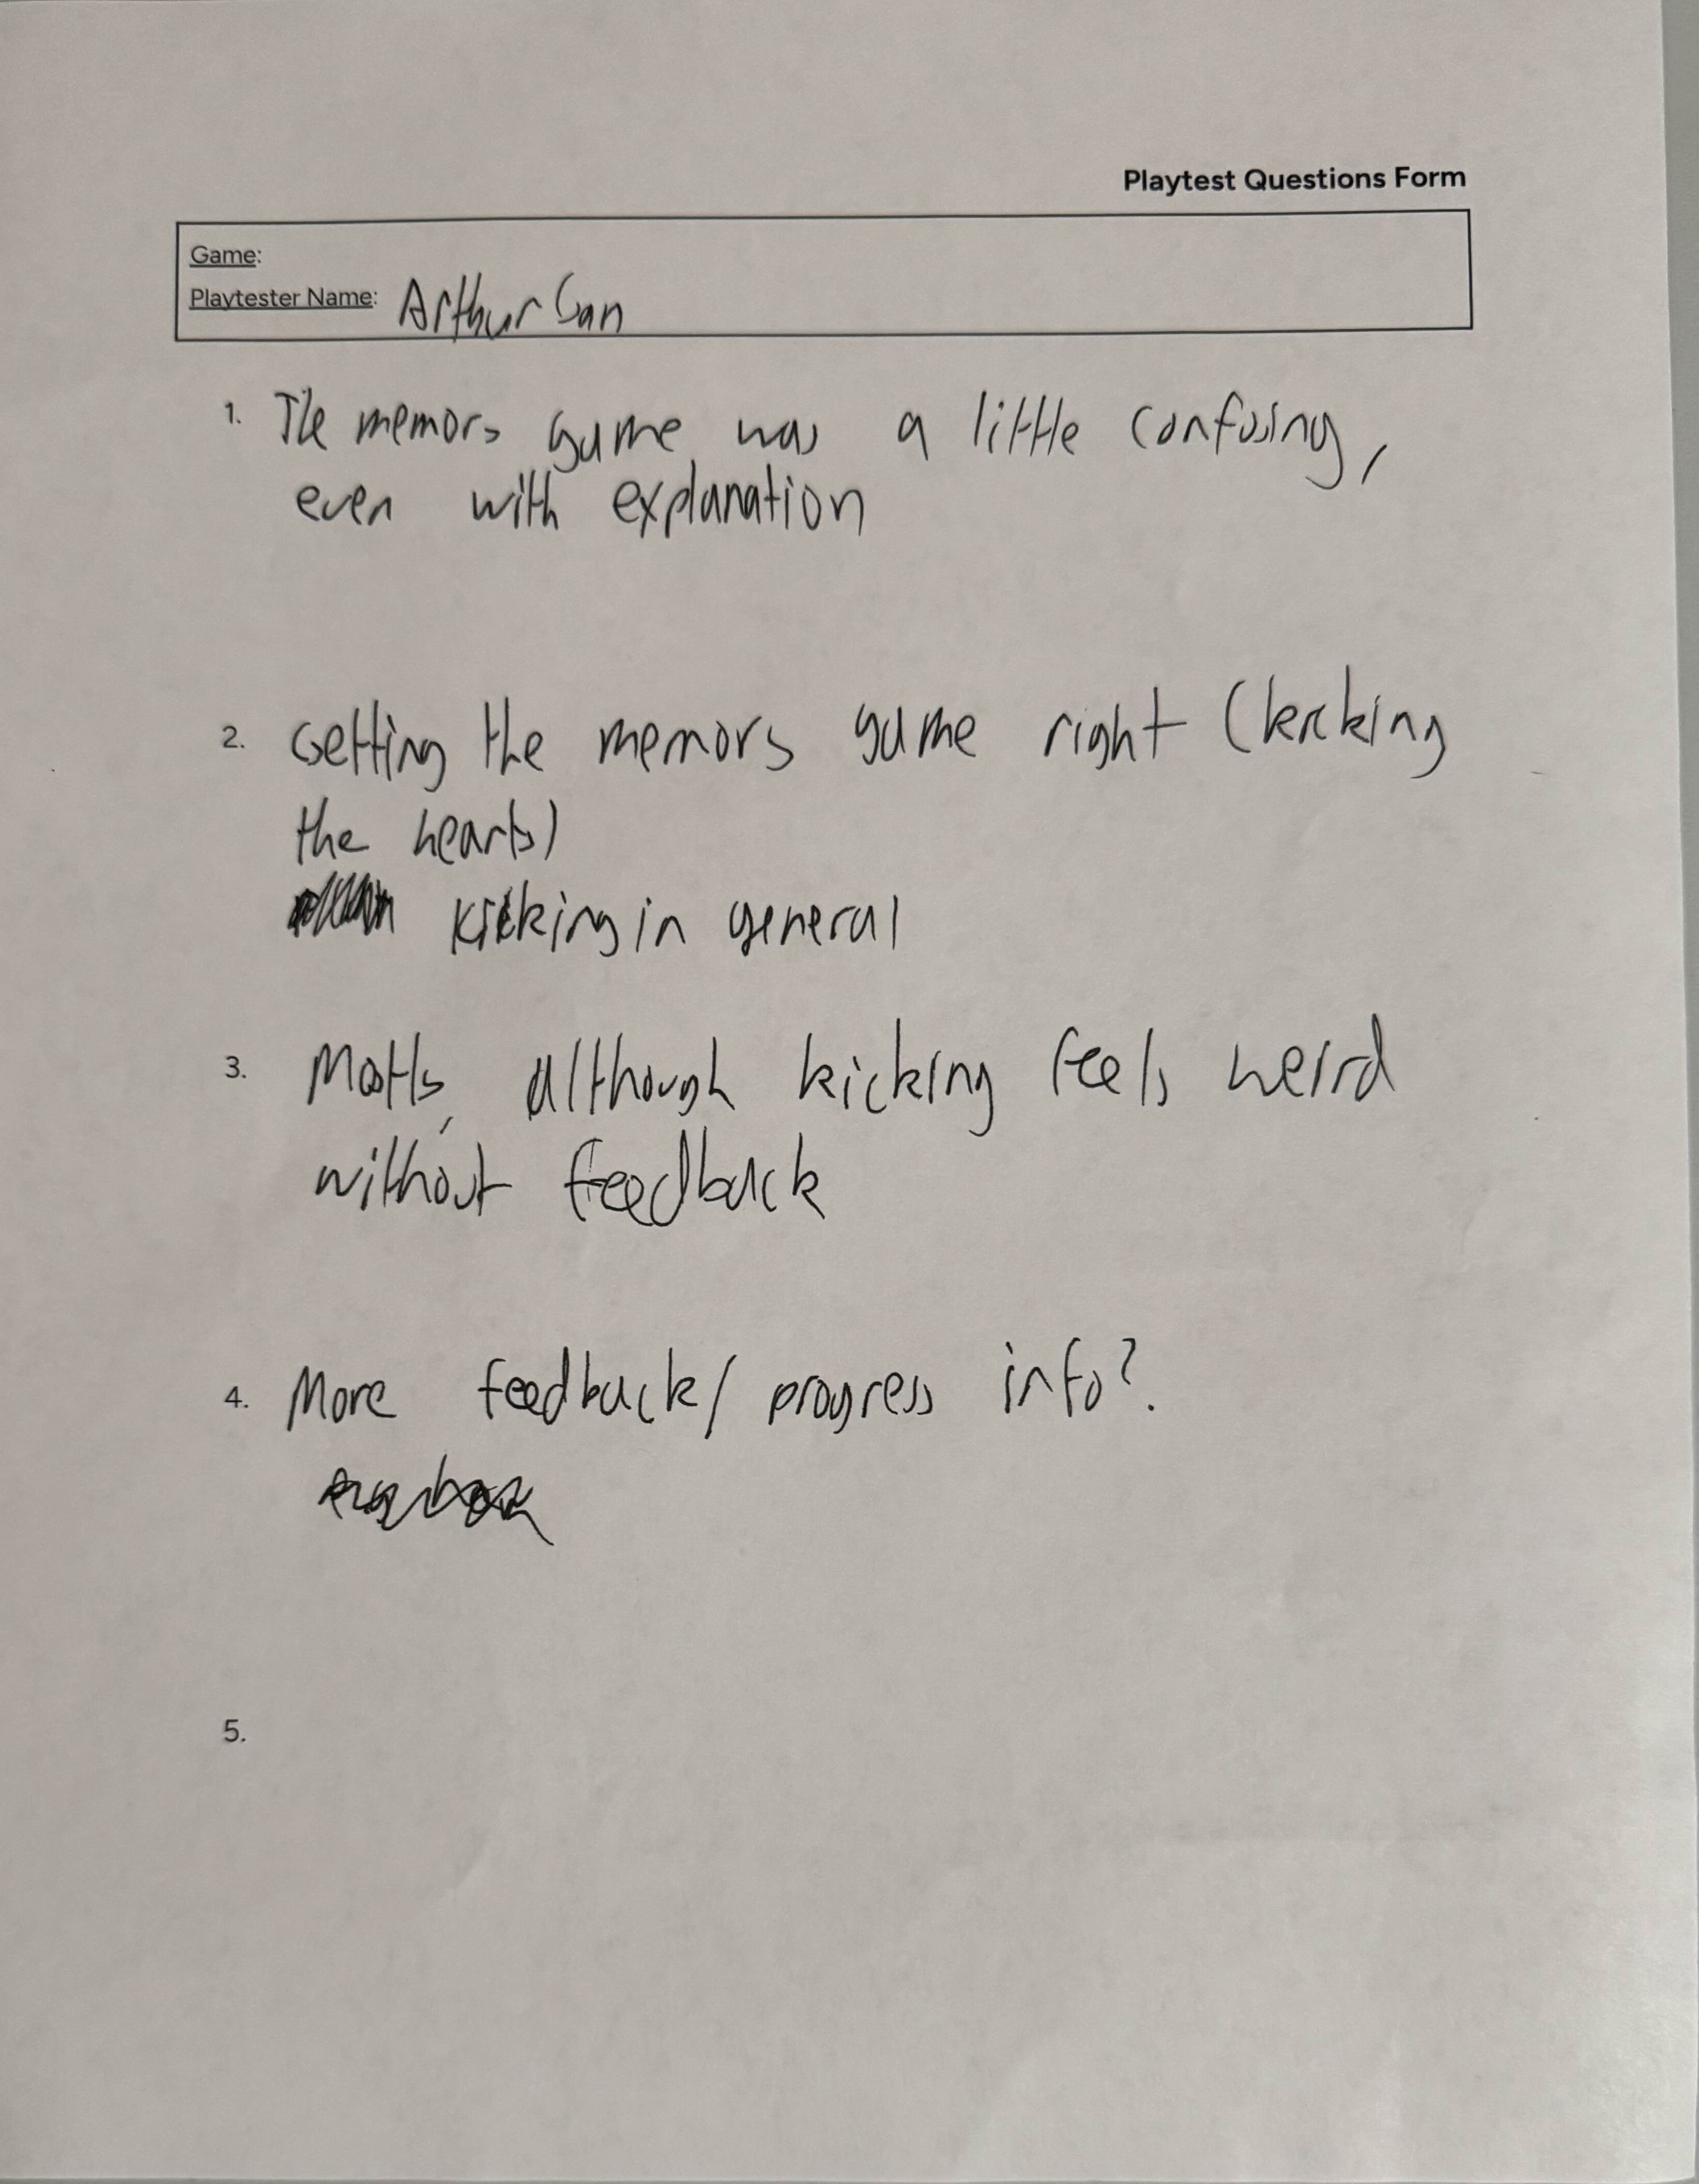 Playtest Questions Form
Game:
Playtester Name: Arthur San
1. The memory game was a little confusing,
even with explanation
2. Getting the memory game right (kicking
the hearts)
kicking in general
3. Mostly, although kicking feels weird
without feedback
4. More feedback/progress info?.
5.